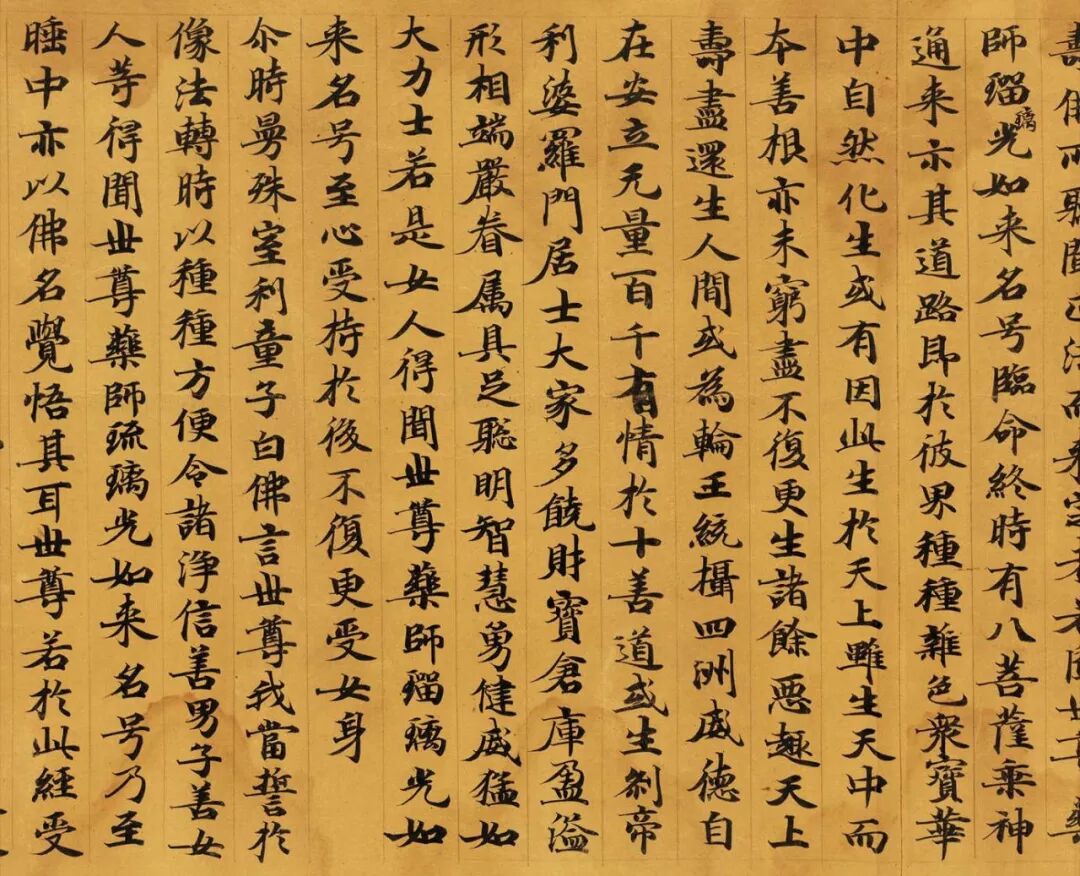 壽佛所聽聞正法而未定者若聞世尊藥
師瑠璃光如来名号臨命終時有八菩薩乘神
通来示其道路即於彼界種種雜色衆寶華
中自然化生或有因此生於天上雖生天中而
本善根亦未窮盡不復更生諸餘惡趣天上
壽盡還生人間或為輪王統攝四洲威德自
在安立无量百千有情於十善道或生剎帝
利婆羅門居士大家多饒財寶倉庫盈溢
形相端嚴眷属具足聡明智慧勇健威猛如
大力士若是女人得聞世尊藥師瑠璃光如
来名号至心受持於後不復更受女身
尒時曼殊室利童子白佛言世尊我當誓於
像法轉時以種種方便令諸淨信善男子善女
人等得聞世尊藥師琉璃光如来名号乃至
睡中亦以佛名覺悟其耳世尊若於此經受